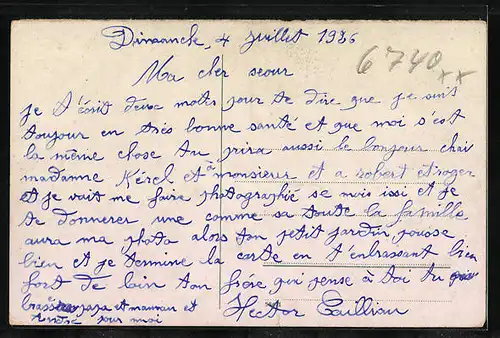 Dimanche, 4 Juillet 1926
6740
Ma cher seour
je t'écrit deux motes pour te dire que je suit
toujour en trés bonne santé et que moi s'est
la même chose tu prira aussi le bonjour chai
madamme et à monsieur et a robert et roger
et je vait me faire photographié se mois issi et je
te donnerer une comme sa toute la famille
aura ma photo alors ton petit jardin pousse
bien et je termine la carte en t'enbrassant bien
fort de loin ton frére qui pense à toi tu
papa et maman et
pour moi
Hector